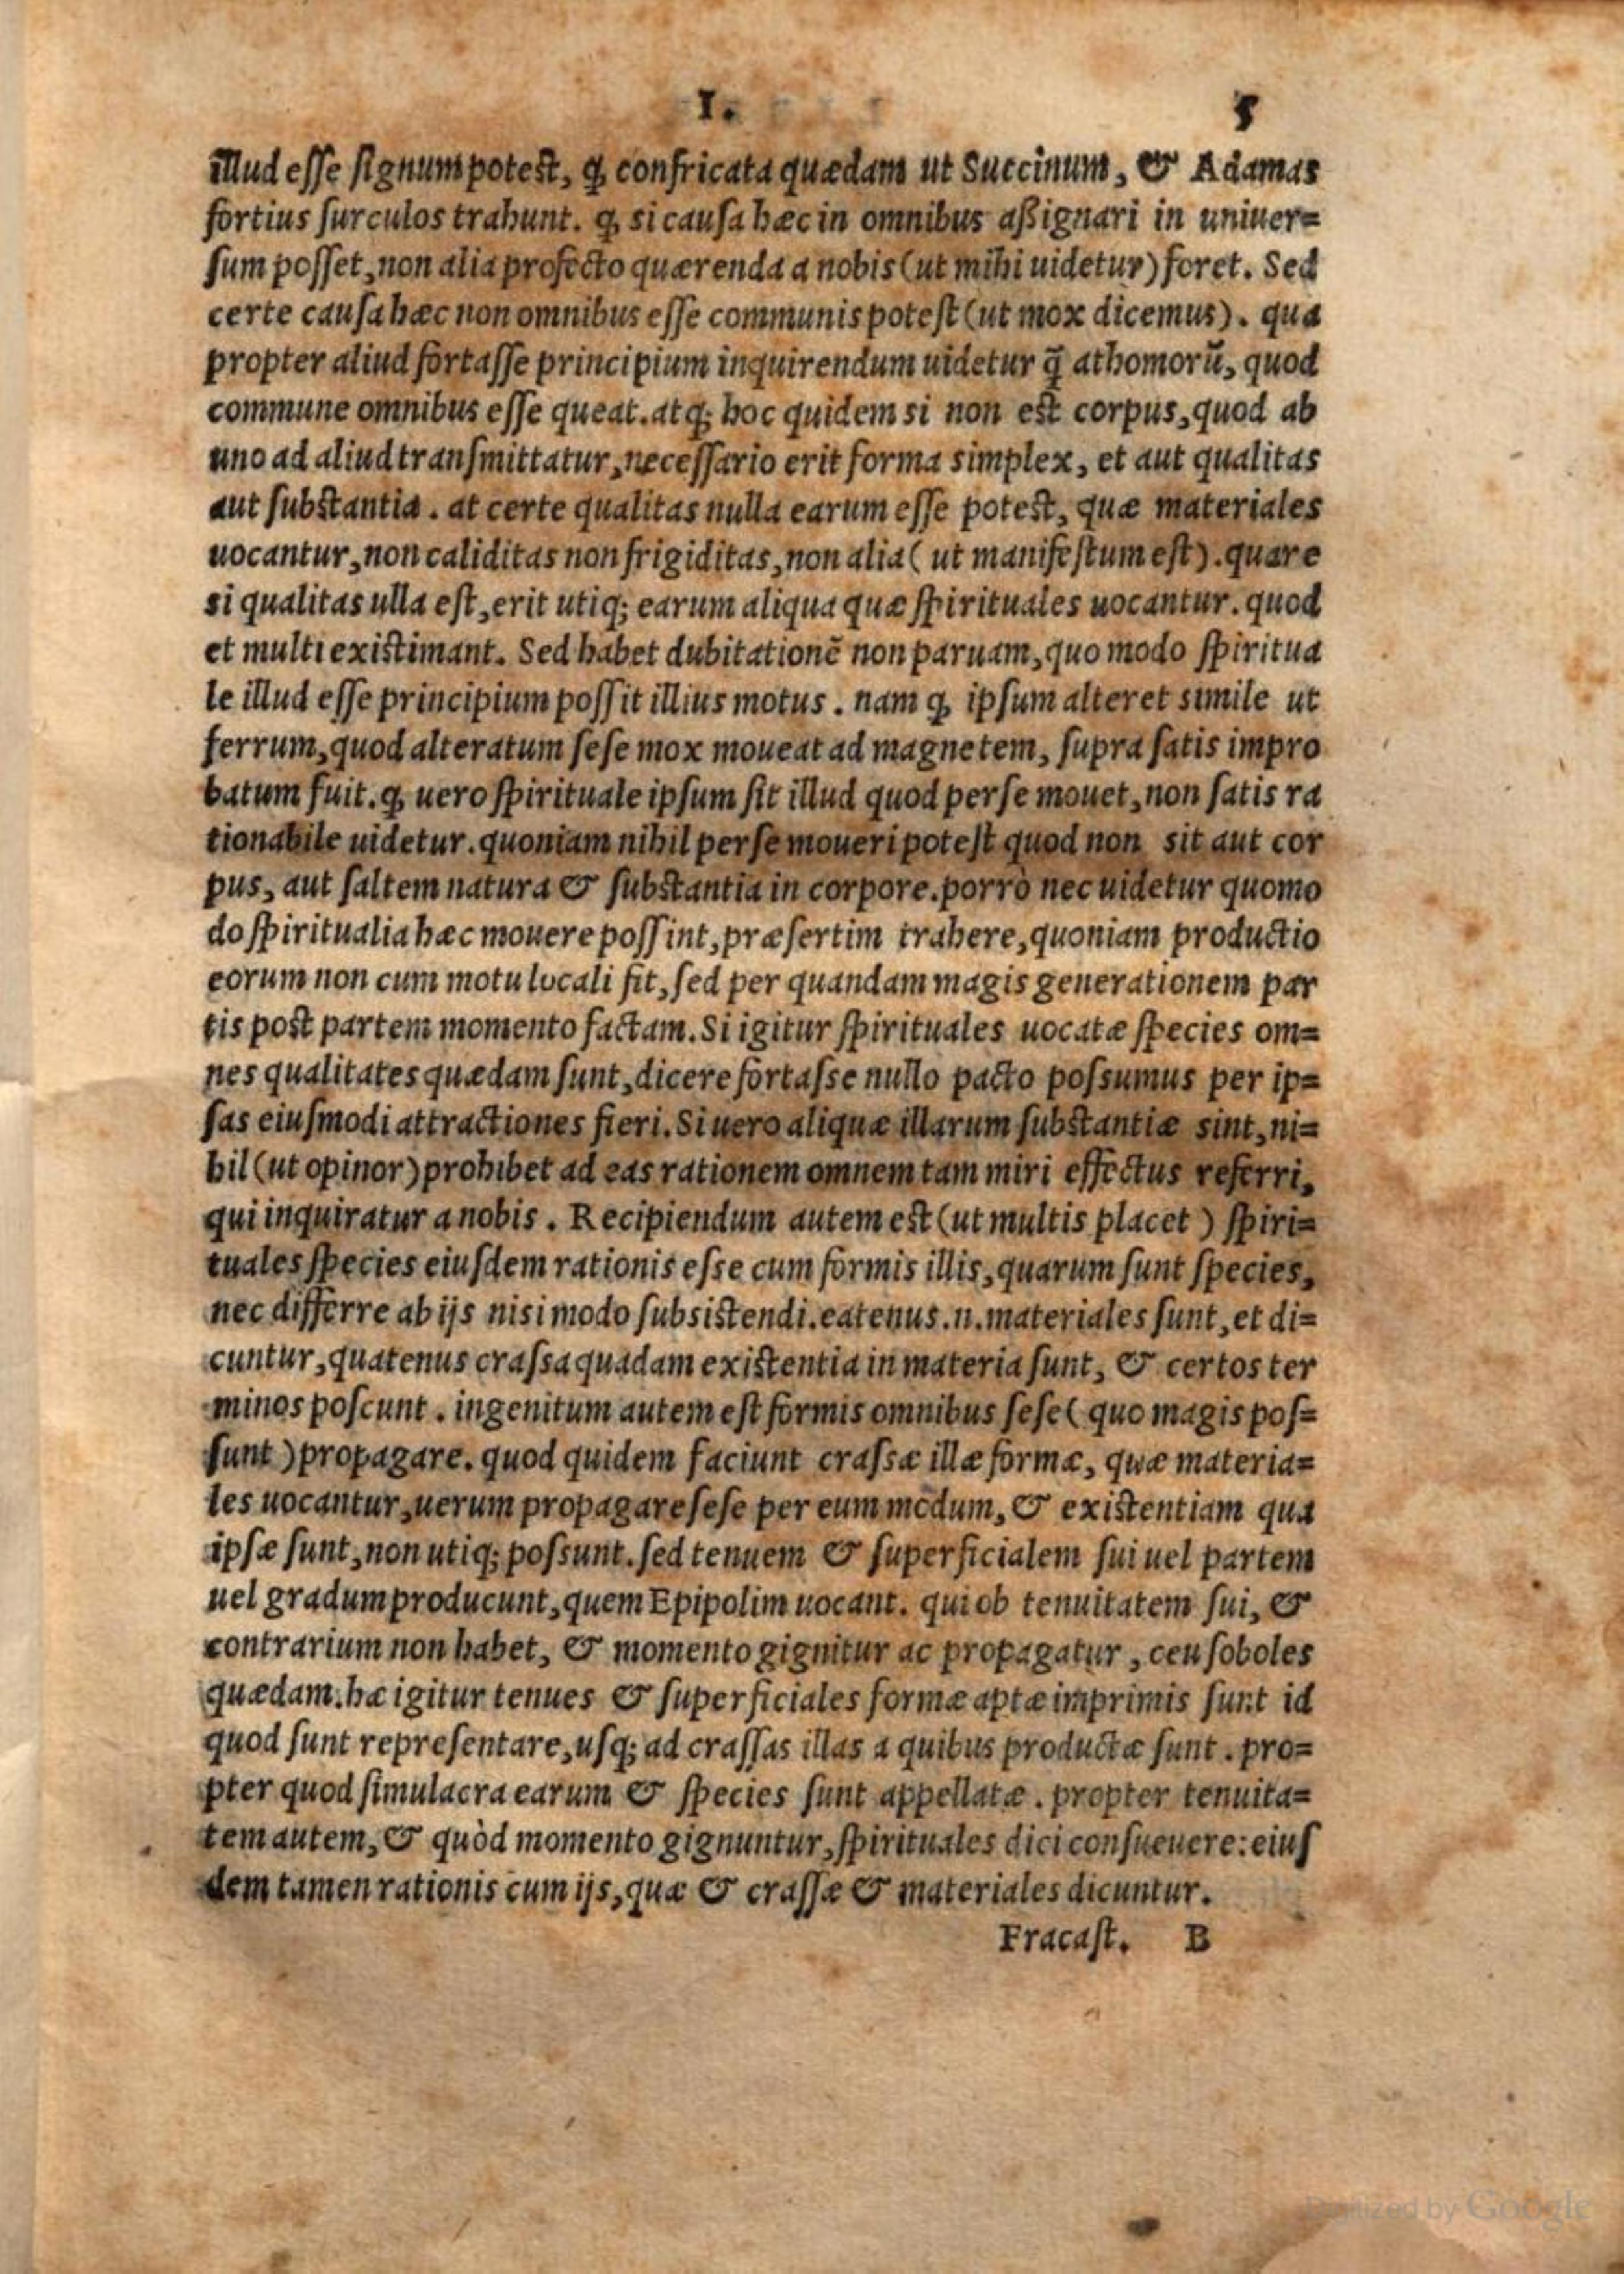 I. 5
illud esse signum potest, ꝙ confricata quædam ut Succinum, & Adamas
fortius surculos trahunt. ꝙ si causa hæc in omnibus aßignari in uniuer=
sum posset, non alia profecto quærenda a nobis (ut mihi uidetur) foret. Sed
certe causa hæc non omnibus esse communis potest (ut mox dicemus). qua
propter aliud fortasse principium inquirendum uidetur q̃ athomorũ, quod
commune omnibus esse queat. atq; hoc quidem si non est corpus, quod ab
uno ad aliud transmittatur, necessario erit forma simplex, et aut qualitas
aut substantia. at certe qualitas nulla earum esse potest, quæ materiales
uocantur, non caliditas non frigiditas, non alia (ut manifestum est). quare
si qualitas ulla est, erit utiq; earum aliqua quæ spirituales uocantur. quod
et multi existimant. Sed habet dubitationẽ non paruam, quo modo spiritua
le illud esse principium possit illius motus. nam ꝙ ipsum alteret simile ut
ferrum, quod alteratum sese mox moueat ad magnetem, supra satis impro
batum fuit. ꝙ uero spirituale ipsum sit illud quod per se mouet, non satis ra
tionabile uidetur. quoniam nihil per se moueri potest quod non sit aut cor
pus, aut saltem natura & substantia in corpore. porrò nec uidetur quomo
do spiritualia hæc mouere possint, præsertim trahere, quoniam productio
eorum non cum motu locali fit, sed per quandam magis generationem par
tis post partem momento factam. Si igitur spirituales uocatæ species om=
nes qualitates quædam sunt, dicere fortasse nullo pacto possumus per ip=
sas eiusmodi attractiones fieri. Si uero aliquæ illarum substantiæ sint, ni=
hil (ut opinor) prohibet ad eas rationem omnem tam miri effectus referri,
qui inquiratur a nobis. Recipiendum autem est (ut multis placet) spiri=
tuales species eiusdem rationis esse cum formis illis, quarum sunt species,
nec differre ab ijs nisi modo subsistendi. eatenus .n. materiales sunt, et di=
cuntur, quatenus crassa quadam existentia in materia sunt, & certos ter
minos poscunt. ingenitum autem est formis omnibus sese (quo magis pos=
sunt) propagare. quod quidem faciunt crassæ illæ formæ, quæ materia=
les uocantur, uerum propagare sese per eum modum, & existentiam qua
ipsæ sunt, non utiq; possunt. sed tenuem & superficialem sui uel partem
uel gradum producunt, quem Epipolim uocant. qui ob tenuitatem sui, &
contrarium non habet, & momento gignitur ac propagatur, ceu soboles
quædam. hæ igitur tenues & superficiales formæ aptæ imprimis sunt id
quod sunt representare, usq; ad crassas illas a quibus productæ sunt. pro=
pter quod simulacra earum & species sunt appellatæ. propter tenuita=
tem autem, & quòd momento gignuntur, spirituales dici consueuere: eius
dem tamen rationis cum ijs, quæ & crassæ & materiales dicuntur.
Fracast. B
Digitized by Google